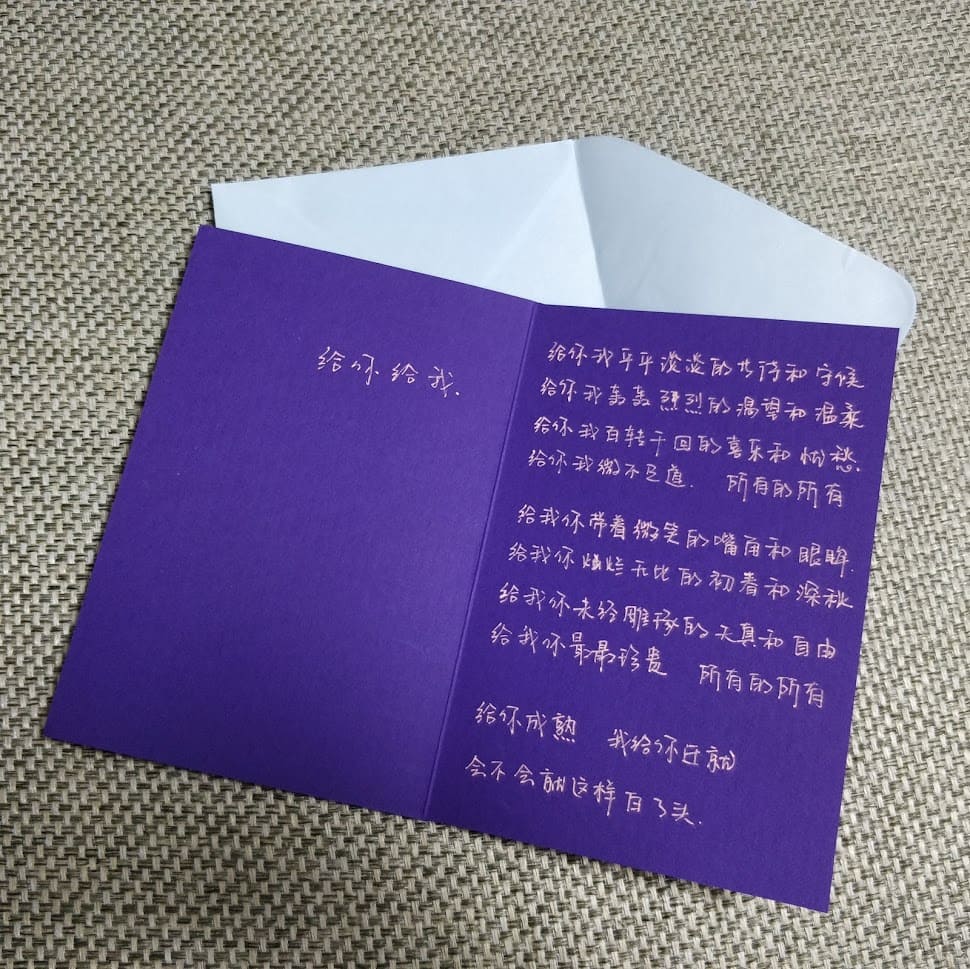 给你给我.
给你我平平淡淡的等待和守候
给你我轰轰烈烈的渴望和温柔
给你我百转千回的喜乐和忧愁.
给你我微不足道. 所有的所有
给我你带着微笑的嘴角和眼眸.
给我你灿烂无比的初春和深秋
给我你未经雕琢的天真和自由
给我你最最珍贵 所有的所有
给你成熟 我给你迁就
会不会就这样白了头.